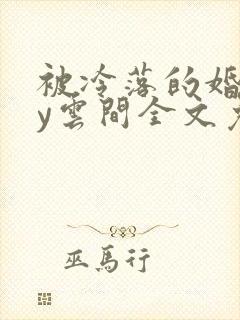 被冷落的婚
y雲間全文
巫馬行